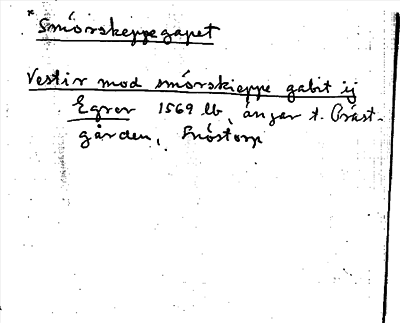 *Smörskeppegapet
Vestir mod smörskieppe gabit ij
Egror 1569 lb, ängar t. Präst-
gården, Snöstorp